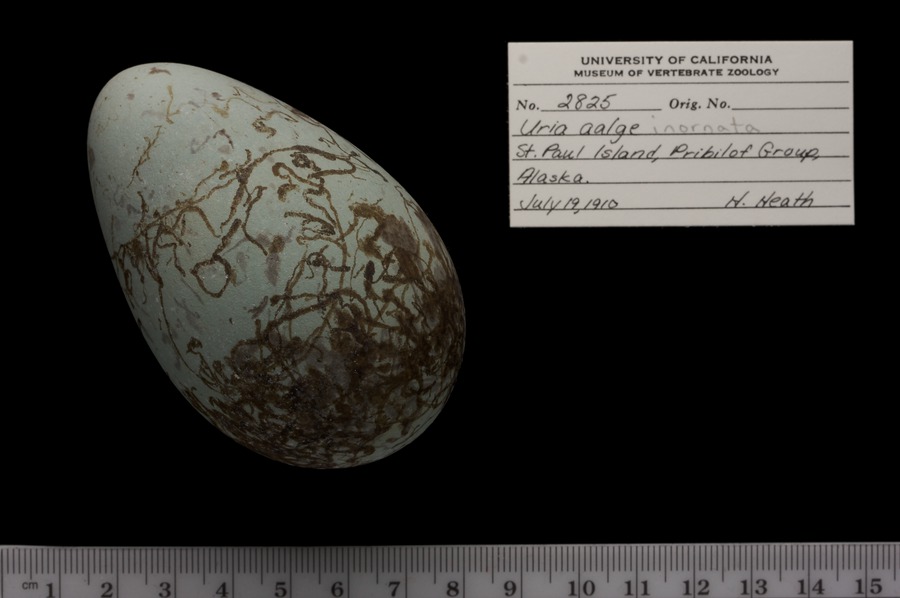 UNIVERSITY OF CALIFORNIA
MUSEUM OF VERTEBRATE ZOOLOGY
No. 2825 Orig. No.
Uria aalge inornata
St. Paul Island, Pribilof Group,
Alaska.
July 19, 1910 H. Heath
cm 1 2 3 4 5 6 7 8 9 10 11 12 13 14 15